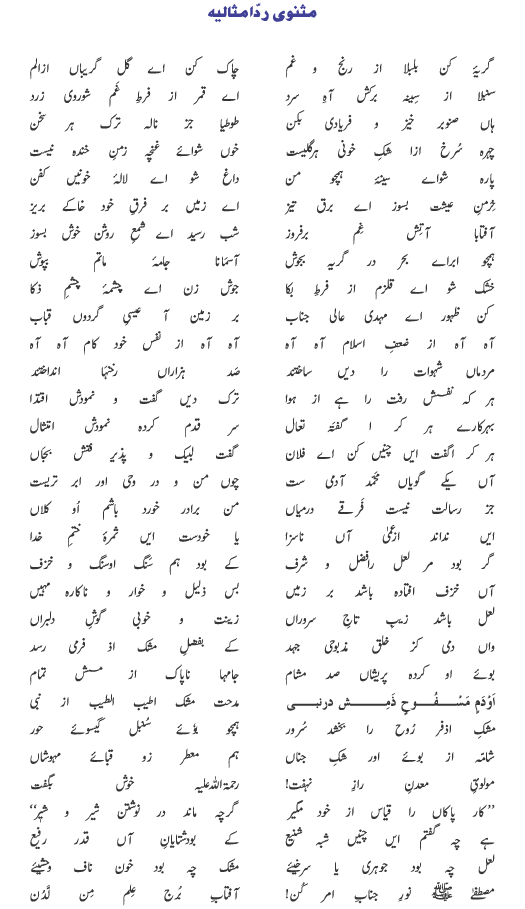 مثنوی ردّ امثالیہ
گریۂ کن بلبلا از رنج و غم چاک کن اے گل گریباں از الم
سنبلا از سینہ برکش آہِ سرد اے قمر از فرطِ غم شو روی زرد
ہاں صنوبر خیز و فریادی بکن طوطیا جز نالہ ترک ہر سخن
چہرہ سُرخ از اشکِ خونی ہر گلیست خوں شو اے غنچہ زمنِ خندہ نیست
پارہ شو اے سینۂ ہمچو من داغ شو اے لالۂ خونیں کفن
خرمنِ عیشت بسوز اے برق تیز اے زمیں بر فرقِ خود خاکے بریز
آفتابا آتشِ غم بر فروز شب رسید اے شمعِ روشن خوش بسوز
ہمچو ابر اے بحر در گریہ بجوش آسمانا جامۂ ماتم بپوش
خشک شو اے قلزم از فرطِ بکا جوش زن اے چشمۂ چشمِ ذکا
کن ظہور اے مہدی عالی جناب بر زمین آ عیسیِ گردوں قباب
آہ آہ از ضعفِ اسلام آہ آہ آہ آہ از نفس خود کام آہ آہ
مردماں شہوات را دیں ساختند صد ہزاراں رخنہا انداختند
ہر کہ نفسش رفت را ہے از ہوا ترک دیں گفت و نمودش اقتدا
بہرکارے ہر کر ا گفتہ تعال سر قدم کردہ نمودش امتثال
ہر کر ا گفت ایں چنیں کن اے فلاں گفت لبیک و پذیرفتش بجاں
آں یکے گویاں محمّد آدمی ست چوں من و در وحی اور ابر تریست
جز رسالت نیست فرقے درمیاں من برادر خورد باشم اُو کلاں
ایں نداند از عمیٰ آں ناسزا یا خودست ایں ثمرۂ ختمِ خدا
گر بود مر لعل را فضل و شرف کے بود ہم سنگ او سنگ و خزف
آں خزف افتادہ باشد بر زمیں بس ذلیل و خوار و ناکارہ مہیں
لعل باشد زیبِ تاجِ سروراں زینت و خوبی گوشِ دلبراں
واں دمی کز خلق مذبوحی جہد کے بفضلِ مشک اذفر می رسد
بوئے او کردہ پریشاں صد مشام جامہا ناپاک از مسش تمام
اَوْدَمِ مَسْفُوحِ ذَمِّش در نبی مدحت مشک اطیب الطیب از نبی
مشکِ اذفر رُوح را بخشد سُرور ہمچو بوئے سُنبل گیسوئے حور
شامّہ از بوئے اور شکِ جناں ہم معطر زو قبائے مہوشاں
مولویِ معدنِ رازِ نہفت! رحمۃ اللہ علیہ خوش بگفت
”کار پاکاں را قیاس از خود مگیر گرچہ ماند در نوشتن شیر و شیر“
ہے چہ گفتم ایں چنیں شبہ شنیع کے بود شایانِ آں قدر رفیع
لعل چہ بود جوہری یا سرخیئے مشک چہ بود خون ناف وحشیئے
مصطفےٰ ﷺ نورِ جنابِ امر کُن! آفتابِ بُرجِ علمِ مِن لَّدُن